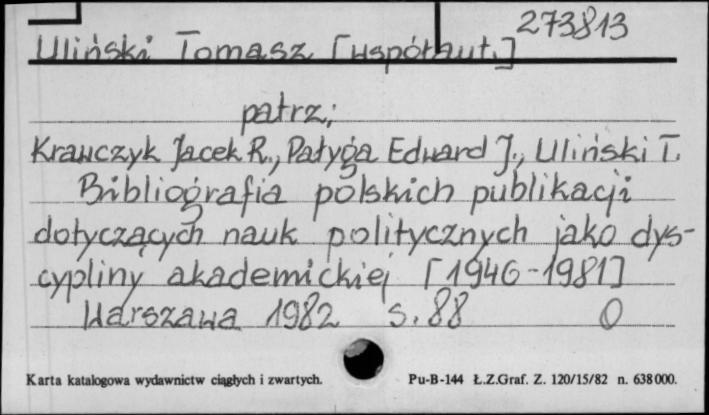 273813
Uliński Tomasz [współaut.]
patrz:
Krawczyk Jacek R., Pałyga Edward J., Uliński T.
Bibliografia polskich publikacji
dotyczących nauk politycznych jako dys-
cypliny akademickiej [1946-1981]
Warszawa 1982 s. 88 O
Karta katalogowa wydawnictw ciągłych i zwartych. Pu-B-144 Ł.Z.Graf. Z. 120/15/82 n. 638000.